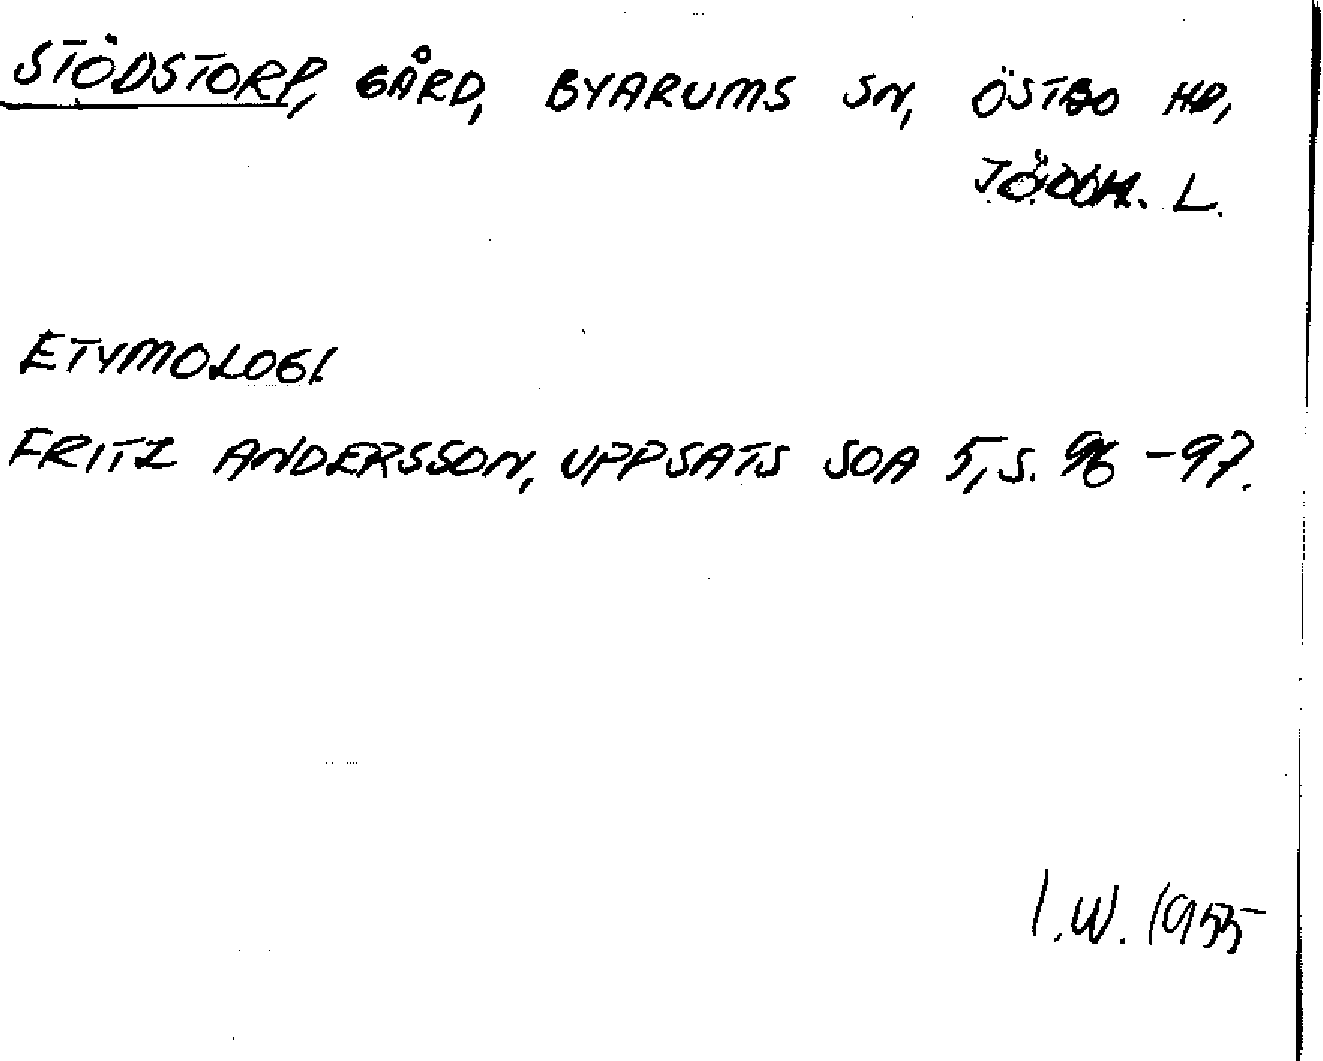 STÖDSTORP, GÅRD, BYARUMS SN, ÖSTBO HD,
L.
ETYMOLOGI
FRITZ ANDERSSON, UPPSATS SOA 5, S. 96-97.
I.W. 1955